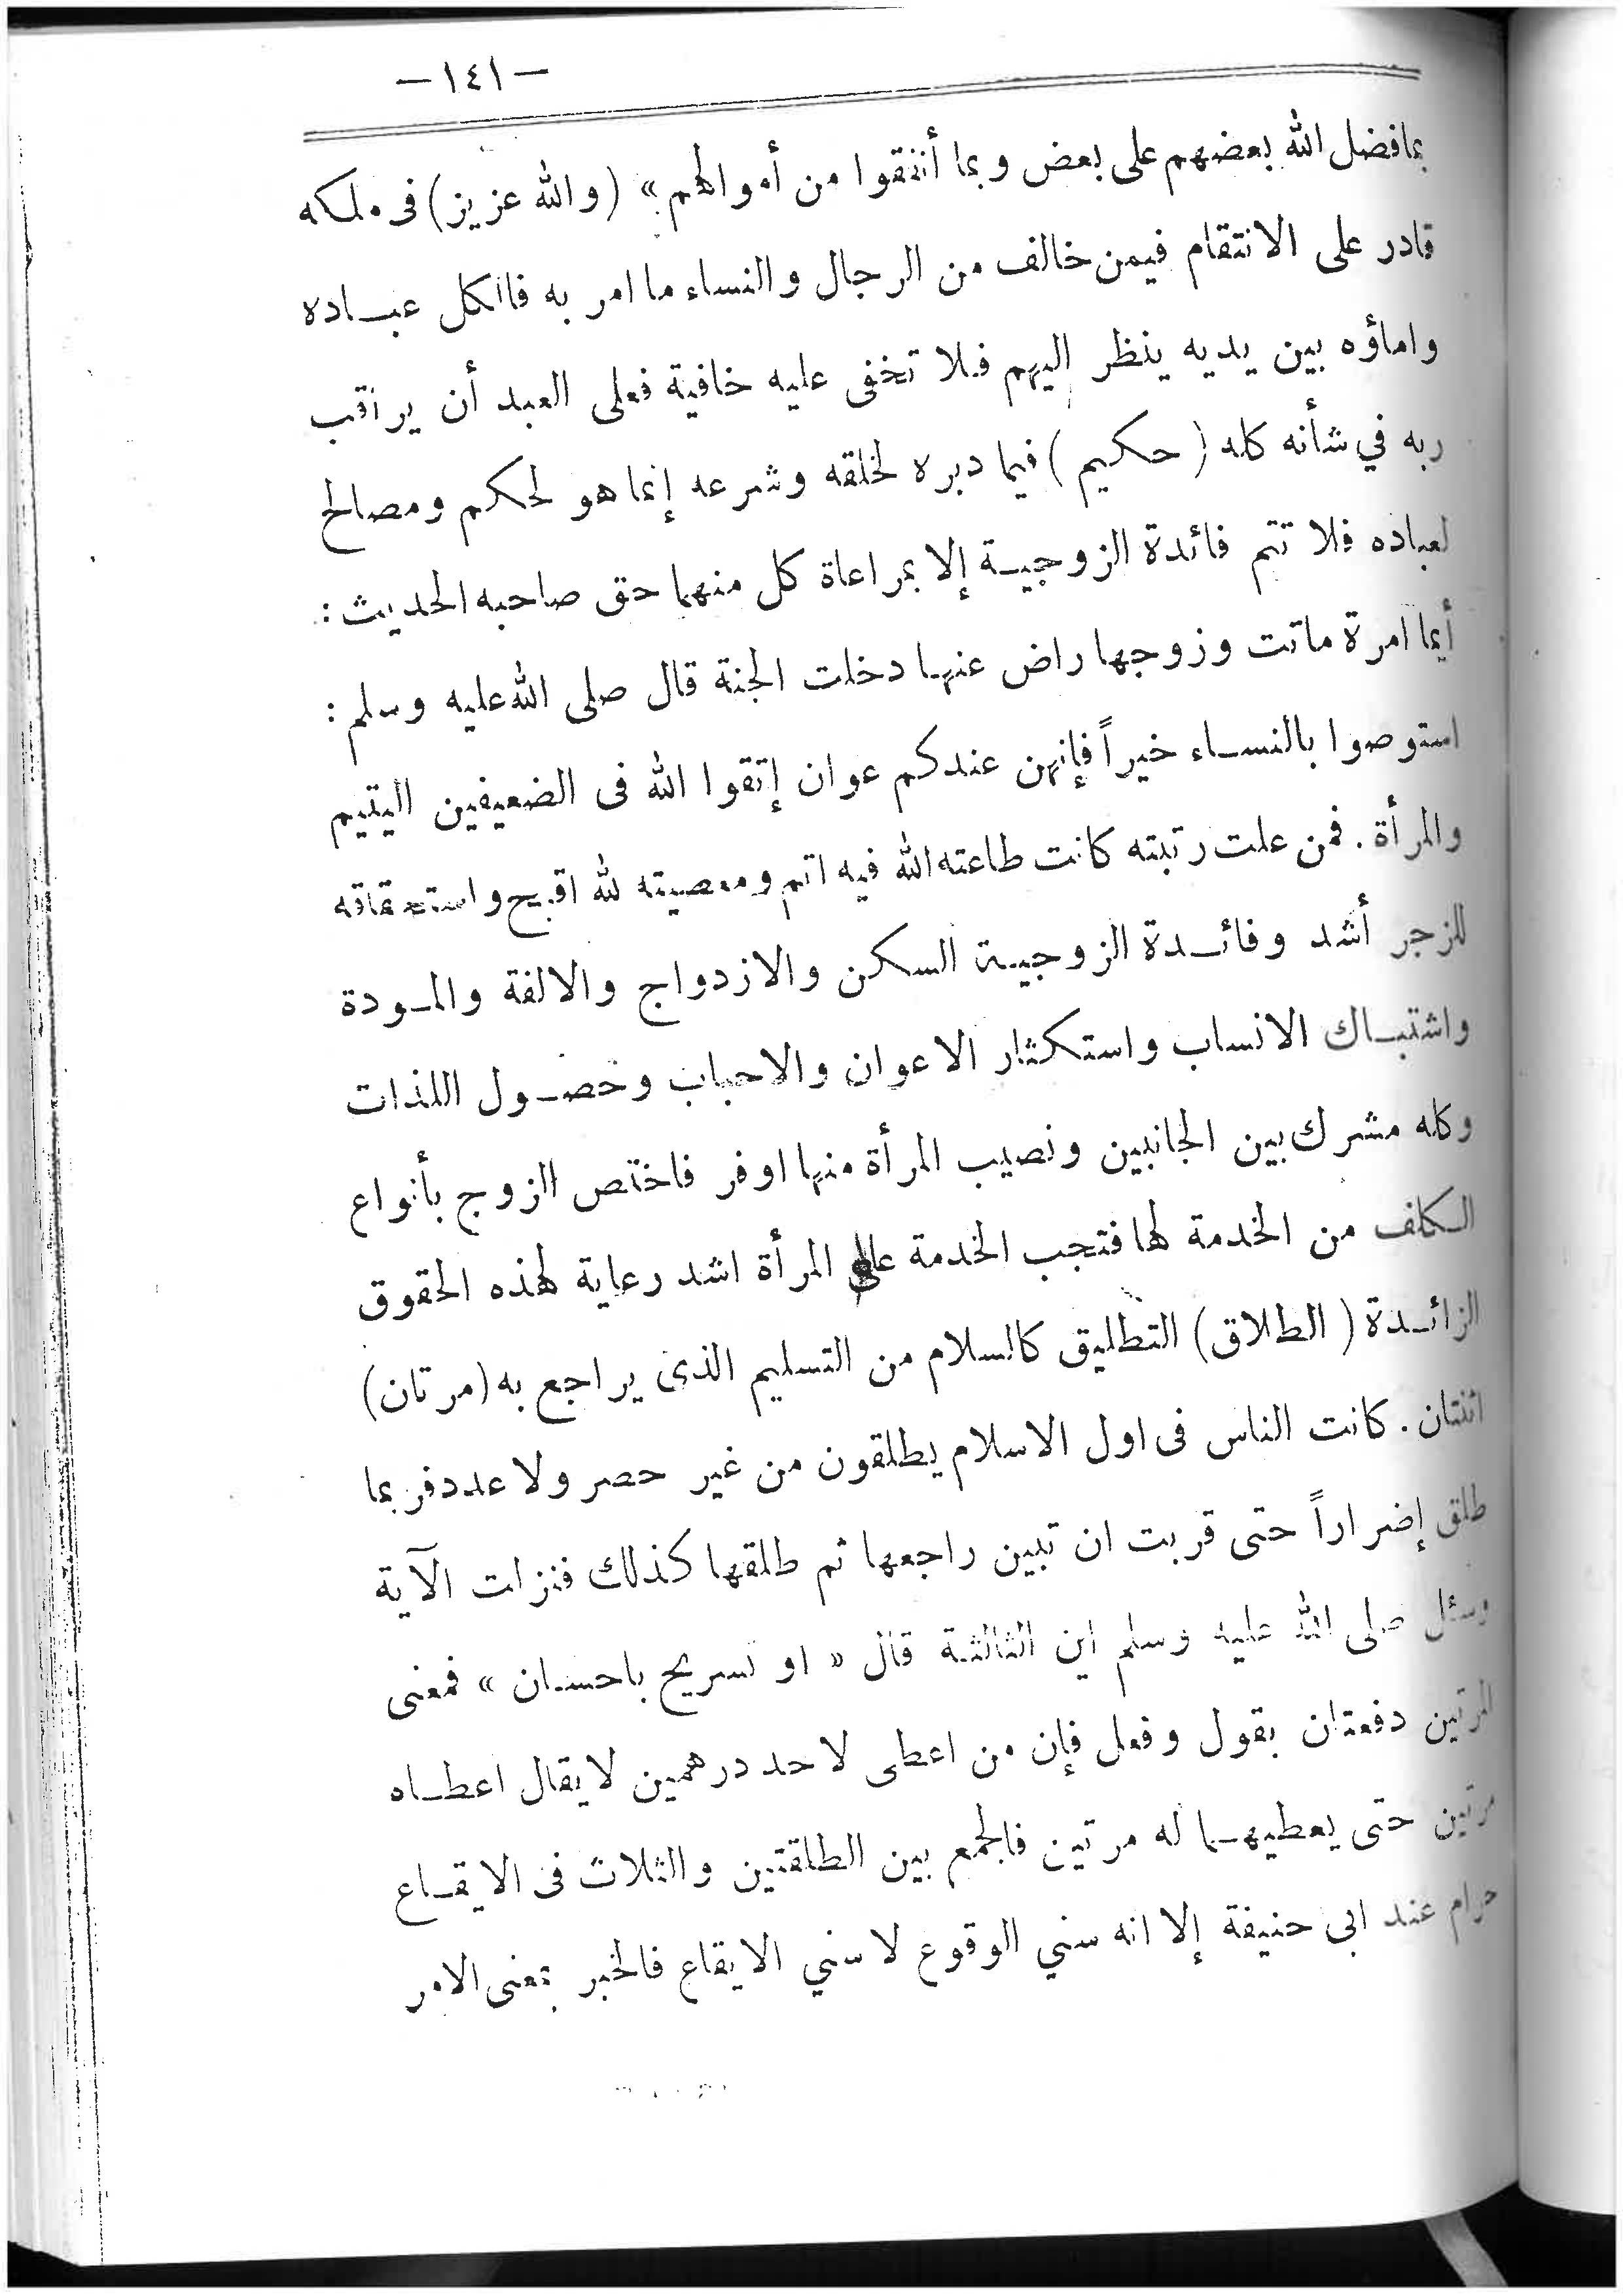 — ١٤١ —
بما فضل الله بعضهم على بعض وبما أنفقوا من أموالهم» (والله عزيز) فى ملكه
قادر على الانتقام فيمن خالف من الرجال والنساء ما امر به فالكل عباده
واماؤه بين يديه ينظر اليهم فلا تخفى عليه خافية فعلى العبد أن يراقب
ربه في شأنه كله (حكيم) فيما دبره لخلقه وشرعه إنما هو لحكم ومصالح
لعباده فلا تتم فائدة الزوجية إلا بمراعاة كل منهما حق صاحبه الحديث :
أيما امرة ماتت وزوجها راض عنها دخلت الجنة قال صلى الله عليه وسلم :
استوصوا بالنساء خيراً فإنهن عندكم عوان إتقوا الله فى الضعيفين اليتيم
والمرأة . فمن علت رتبته كانت طاعته الله فيه اتم ومعصيته لله اقبح واستحقاقه
للزجر أشد وفائدة الزوجية السكن والازدواج والالفة والمودة
واشتباك الانساب واستكثار الاعوان والاحباب وحصول اللذات
وكله مشرك بين الجانبين ونصيب المرأة منها اوفر فاختص الزوج بأنواع
الكلف من الخدمة لها فتجب الخدمة على المرأة اشد رعاية لهذه الحقوق
الزائدة (الطلاق) التطليق كالسلام من التسليم الذى يراجع به (مرتان)
اثنتان . كانت الناس فى اول الاسلام يطلقون من غير حصر ولا عدد فربما
طلق إضراراً حتى قربت ان تبين راجعها ثم طلقها كذلك فنزلت الآية
وسئل صلى الله عليه وسلم اين الثالثة قال « او تسريح باحسان » فمعنى
المرتين دفعتان بقول وفعل فإن من اعطى لاحد درهمين لا يقال اعطاه
مرتين حتى يعطيهما له مرتين فالجمع بين الطلقتين والثلاث فى الايقاع
حرام عند ابى حنيفة إلا انه سني الوقوع لا سني الايقاع فالخبر بمعنى الامر